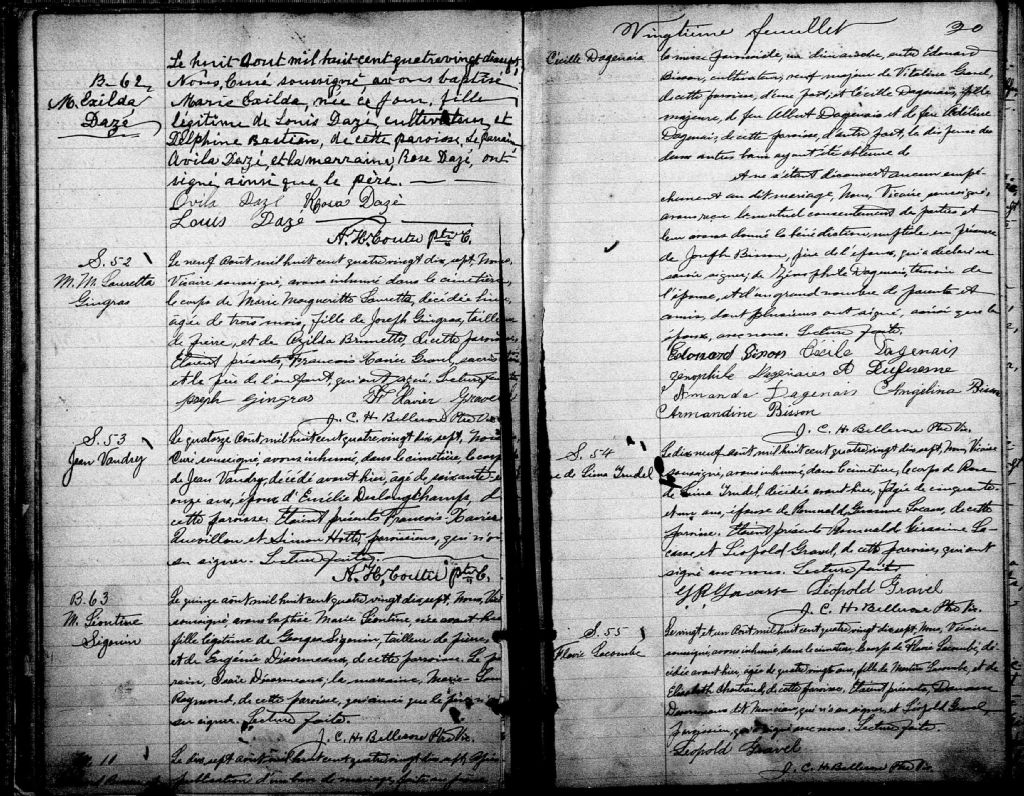 B. 62
M. Exilda
Dazé
Le huit Aout mil huit cent quatre vingt dix sept,
Nous, Curé soussigné, avons baptisé
Marie Exilda, née ce jour, fille
légitime de Louis Dazé, cultivateur, et
Delphine Bastien, de cette paroisse. Le parrain
Avila Dazé, et la marraine, Rose Dazé, ont
signé, ainsi que le père.
Ovila Dazé Rosa Dazé
Louis Dazé
A. H. Coutu ptre C.
S. 52
M. M. Lauretta
Gingras
Le neuf Aout mil huit cent quatre vingt dix sept, Nous,
Vicaire soussigné, avons inhumé dans le cimetière,
le corps de Marie Margueritte Lauretta, décédée hier,
âgée de trois mois, fille de Joseph Gingras, tailleur
de pierre, et de Exilda Brunette, de cette paroisse
Etaient présents, Francois Xavier Gravel,
et le père de l'enfant, qui ont signé. Lecture faite
Joseph gingras F Xavier Gravel
J. C. H. Bellerose Ptre Vic.
S. 53
Jean Vaudry
Le quatorze Aout mil huit cent quatre vingt dix sept, Nous
Curé soussigné, avons inhumé, dans le cimetière, le corps
de Jean Vaudry, décédé avant hier, âgé de soixante et
onze ans, époux d'Emélie Deslongchamps, de
cette paroisse. Etaient présents Francois-Xavier
Ouvillon et Simon Hotte, paroissiens, qui n'ont
su signer. Lecture faite.
A. H. Coutu ptre C.
B. 63
M. Léontine
Signuin
Le quinze aout mil huit cent quatre vingt dix sept, Nous, Vic
soussigné, avons baptisé Marie Léontine née avant hier
fille légitime de Georges Signuin, tailleur de pierre,
et de Eugénie Désormeaux, de cette paroisse. Le par
rain, Isaïe Désormeaux, la marraine, Marie-
Raymond, de cette paroisse, qui ainsi que le père n'ont
su signer. Lecture faite.
J. C. H. Bellerose Ptre Vic.
M. 11
Le dix sept août mil huit cent quatre vingt dix sept, Après
publication d'un ban de mariage, faite au prône
Vingtième feuillet 20
Cécille Dagenais
la messe paroissiale, un dimanche, entre Edouard
Bisson, cultivateur, veuf majeur de Vitaline Gravel,
de cette paroisse, d'une part; et Cécille Dagenais, fille
majeure, de feu Albert Dagenais et de feu Adeline
Dagenais, de cette paroisse, d'autre part, la dispense de
deux autres bans ayant été obtenue de
et ne s'étant découvert aucun empê-
chement au dit mariage, Nous, Vicaire soussigné,
avons reçu le mutuel consentement des parties et
leur avons donné la bénédiction nuptiale en présence
de Joseph Bisson, père de l'époux, qui a déclaré ne
savoir signer; de Zénophile Dagenais, témoin de
l'épouse, et d'un grand nombre de parents et
amis, dont plusieurs ont signé, ainsi que les
époux, avec nous. Lecture faite.
Edouard Bison Cécile Dagenais
Zenophile Dagenais A Dufresne
Amanda Dagenais Angelina Bisson
Armandine Bisson
J. C. H. Bellerose Ptre Vic.
S. 54
e de Lima Trudel
Le dix neuf aout mil huit cent quatre vingt dix sept, Nous, Vicaire
soussigné, avons inhumé, dans le cimetière, le corps de Rose
de Lima Trudel décédée avant hier, âgée de cinquante
et un ans, épouse de Romuald Lacasse, de cette
paroisse. Etaient présents Romuald La-
casse et Léopold Gravel, de cette paroisse, qui ont
signé avec nous. Lecture faite.
Lacasse Léopold Gravel
J. C. H. Bellerose Ptre Vic.
S. 55
Flavie Lacombe
Le vingt et un Aout mil huit cent quatre vingt dix sept, Nous, Vicaire
soussigné, avons inhumé, dans le cimetière, le corps de Flavie Lacombe, dé-
cédée avant hier, âgée de quatre vingts ans, fille de Lacombe, et de
Elisabeth Chartrand, de cette paroisse. Etaient présents, Damase
qui n'a su signer, et Léopold Gravel,
paroissien, qui a signé avec nous. Lecture faite.
Léopold Gravel
J. C. H. Bellerose Ptre Vic.